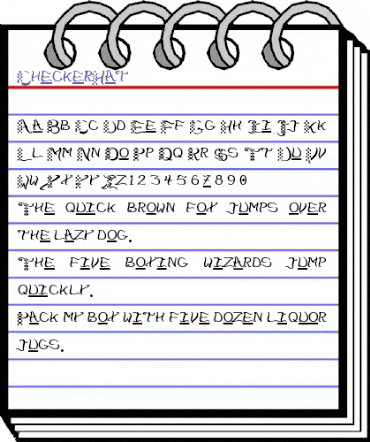 CHECKERHAT
AA BB CC DD EE FF GG HH II JJ KK
LL MM NN OO PP QQ RR SS TT UU VV
WW XX YY ZZ 1 2 3 4 5 6 7 8 9 0
THE QUICK BROWN FOX JUMPS OVER
THE LAZY DOG.
THE FIVE BOXING WIZARDS JUMP
QUICKLY.
PACK MY BOX WITH FIVE DOZEN LIQUOR
JUGS.